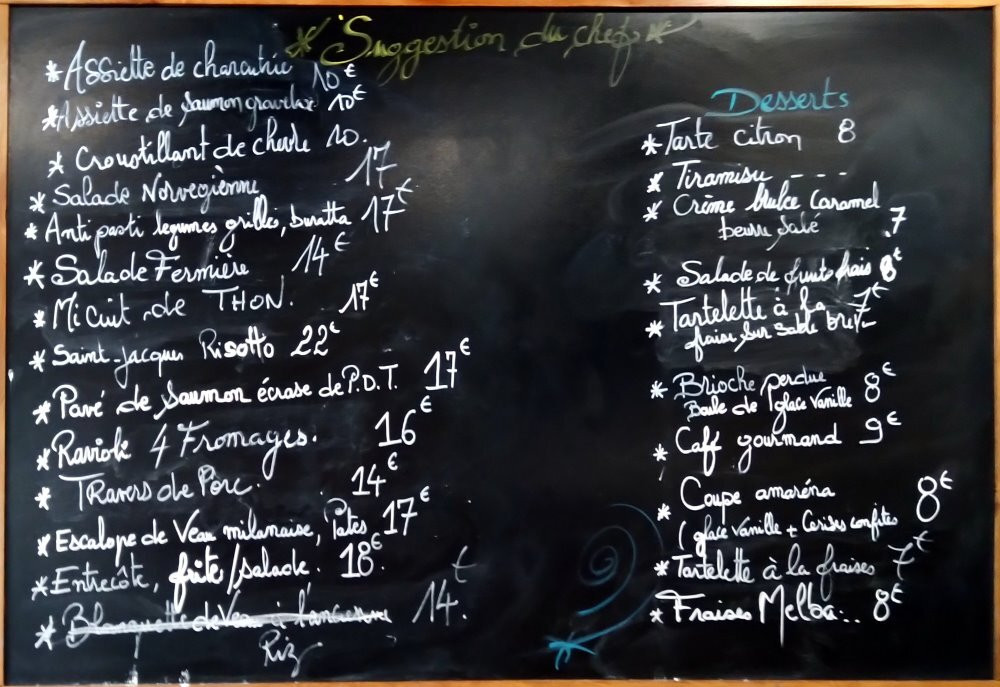 * Suggestion du chef *
* Assiette de charcuterie 10€
* Assiette de saumon gravelax 10€
* Croustillant de chèvre 10.
* Salade Norvegiènne 17
* Anti pasti legumes grilles, buratta 17€
* Salade Fermière 14€
* Mi cuit de THON. 17€
* Saint-Jacques Risotto 22€
* Pavé de saumon écrase de P.D.T. 17€
* Ravioli 4 Fromages. 16€
* Travers de Porc. 14€
* Escalope de Veau milanaise, Pates 17€
* Entrecôte, frite/salade. 18€.
* Blanquette de Veau à l'ancienne 14€.
Riz
Desserts
* Tarte citron 8
* Tiramisu - - -
* Crème brulee Caramel
beurre salé 7
* Salade de fruits frais 8€
* Tartelette à la 7€
fraise sur sablé
* Brioche perdue 8€
Boule de glace Vanille
* Café gourmand 9€
* Coupe amaréna 8€
( glace vanille + Cerises confites
* Tartelette à la fraises 7€
* Fraises Melba.. 8€